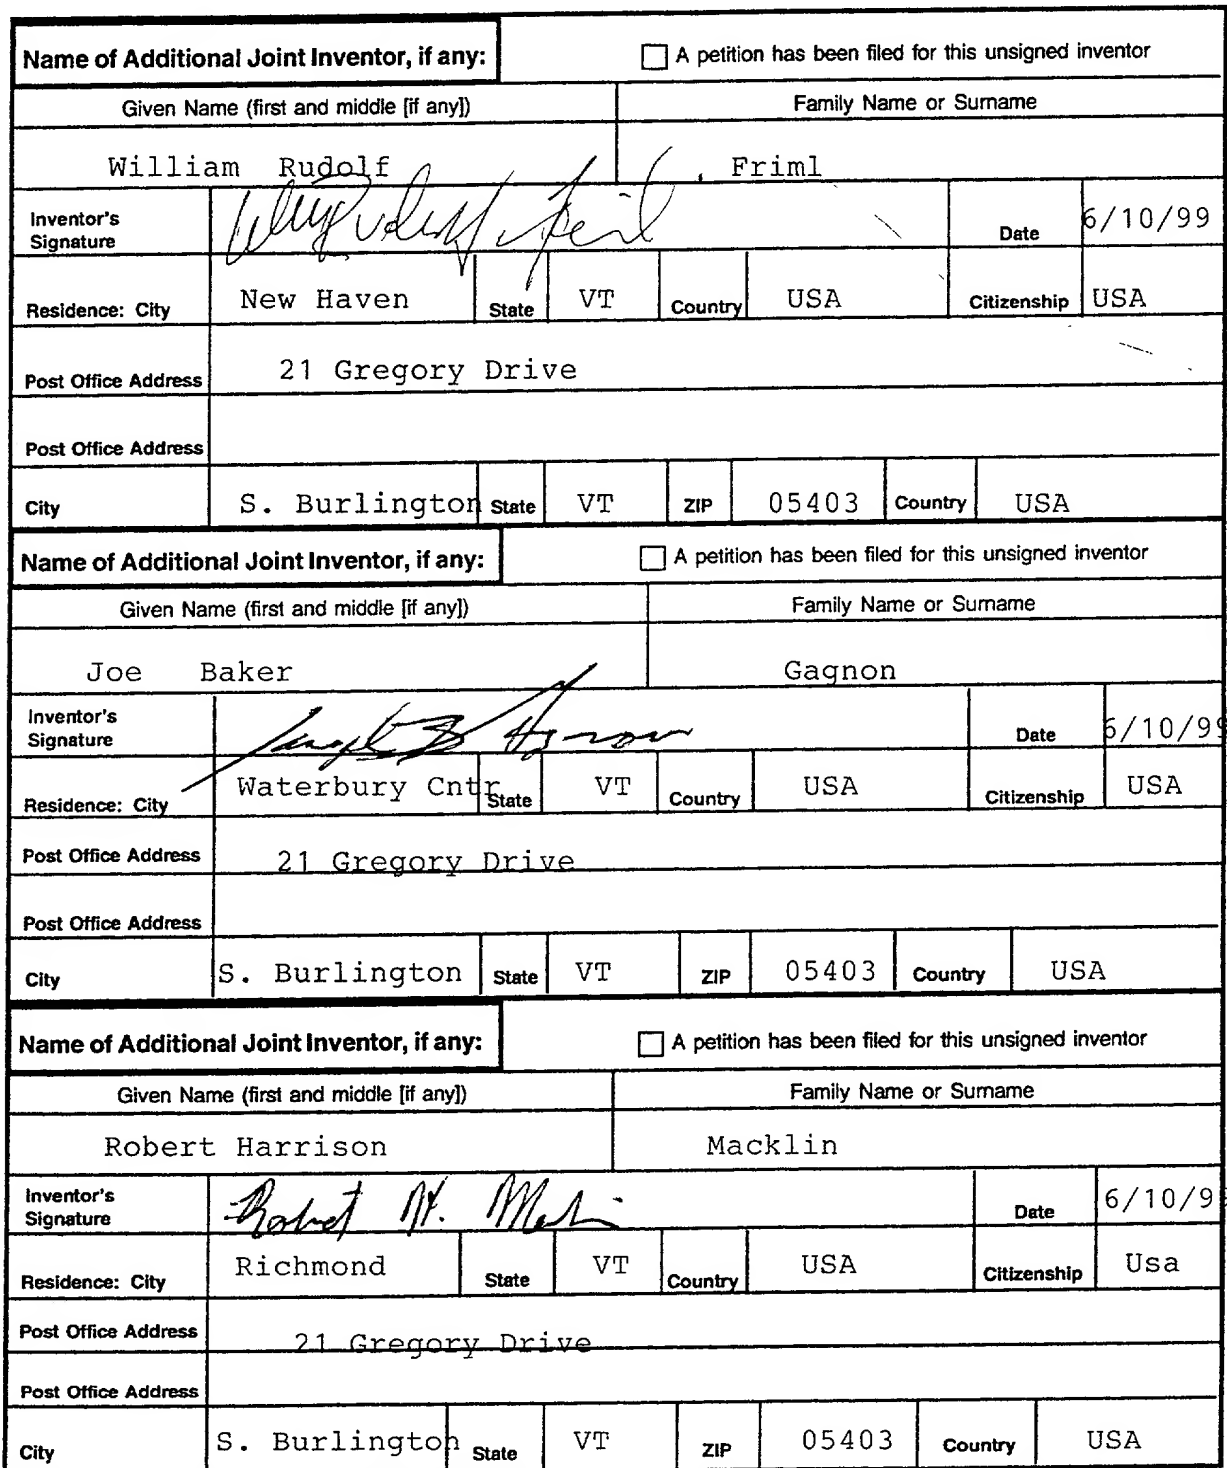 Name of Additional Joint Inventor, if any: A petition has been filed for this unsigned inventor
Given Name (first and middle [if any]) Family Name or Surname
William Rudolf Friml
Inventor's Signature Date 6/10/99
Residence: City New Haven State VT Country USA Citizenship USA
Post Office Address 21 Gregory Drive
Post Office Address
City S. Burlington State VT ZIP 05403 Country USA
Name of Additional Joint Inventor, if any: A petition has been filed for this unsigned inventor
Given Name (first and middle [if any]) Family Name or Surname
Joe Baker Gagnon
Inventor's Signature Date 6/10/99
Residence: City Waterbury Cntr State VT Country USA Citizenship USA
Post Office Address 21 Gregory Drive
Post Office Address
City S. Burlington State VT ZIP 05403 Country USA
Name of Additional Joint Inventor, if any: A petition has been filed for this unsigned inventor
Given Name (first and middle [if any]) Family Name or Surname
Robert Harrison Macklin
Inventor's Signature Robert H. Date 6/10/9
Residence: City Richmond State VT Country USA Citizenship Usa
Post Office Address 21 Gregory Drive
Post Office Address
City S. Burlington State VT ZIP 05403 Country USA